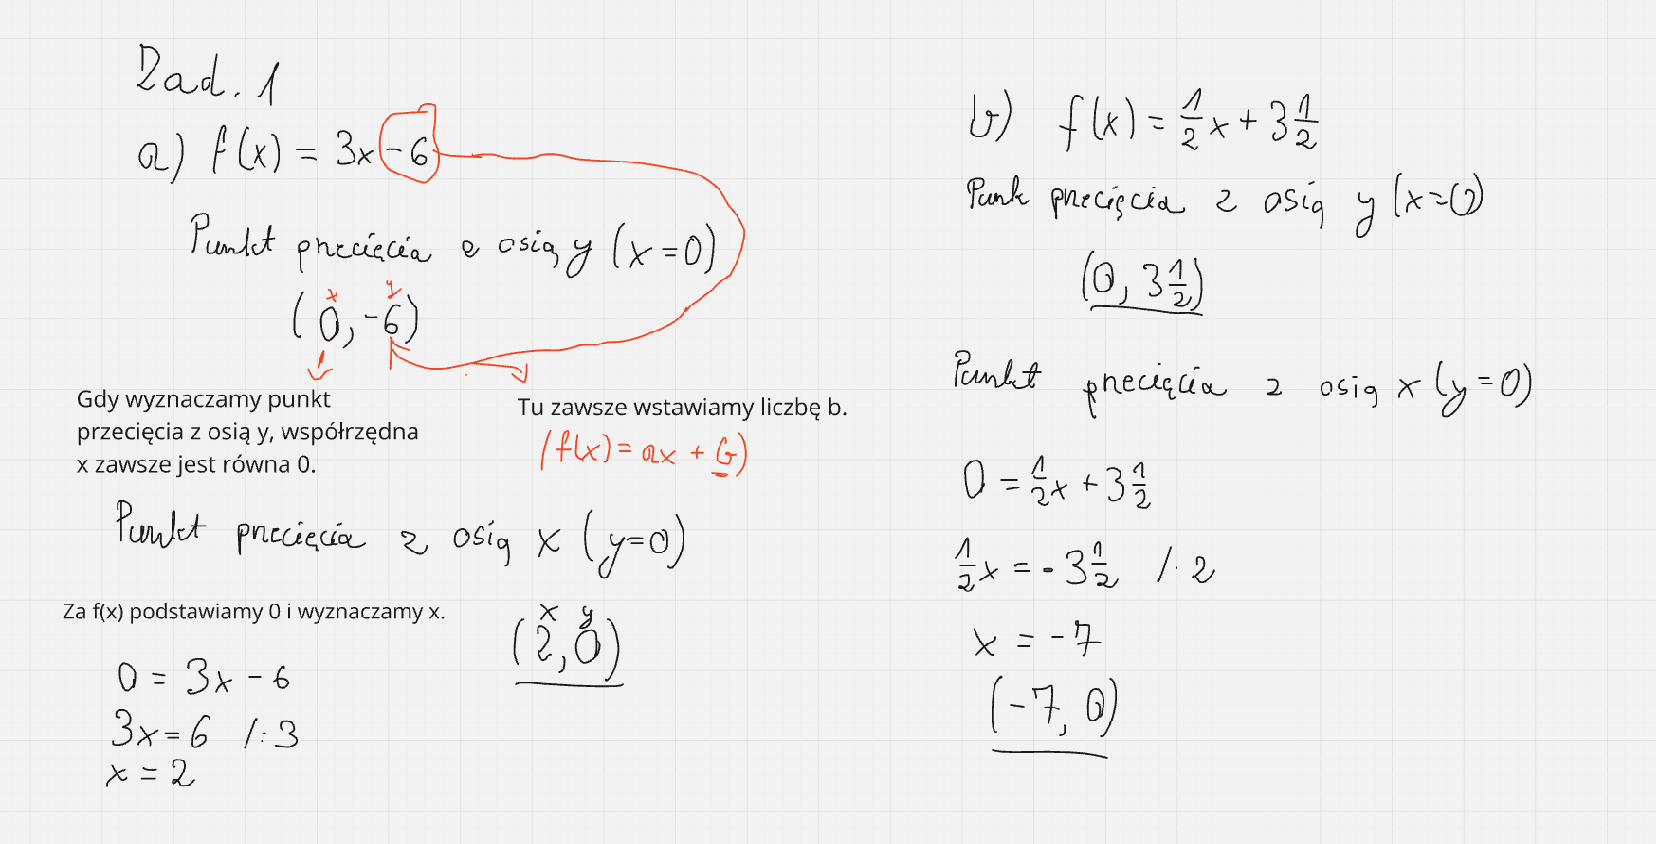 Zad. 1
a) f(x) = 3x - 6
Punkt przecięcia z osią y (x = 0)
x y
(0, -6)
Gdy wyznaczamy punkt
przecięcia z osią y, współrzędna
x zawsze jest równa 0.
Tu zawsze wstawiamy liczbę b.
(f(x) = ax + b)
Punkt przecięcia z osią x (y=0)
Za f(x) podstawiamy 0 i wyznaczamy x.
x y
(2, 0)
0 = 3x - 6
3x = 6 /:3
x = 2
b) f(x) = 1/2 x + 3 1/2
Punk przecięcia z osią y (x=0)
(0, 3 1/2)
Punkt przecięcia z osią x (y=0)
0 = 1/2 x + 3 1/2
1/2 x = - 3 1/2 /· 2
x = -7
(-7, 0)